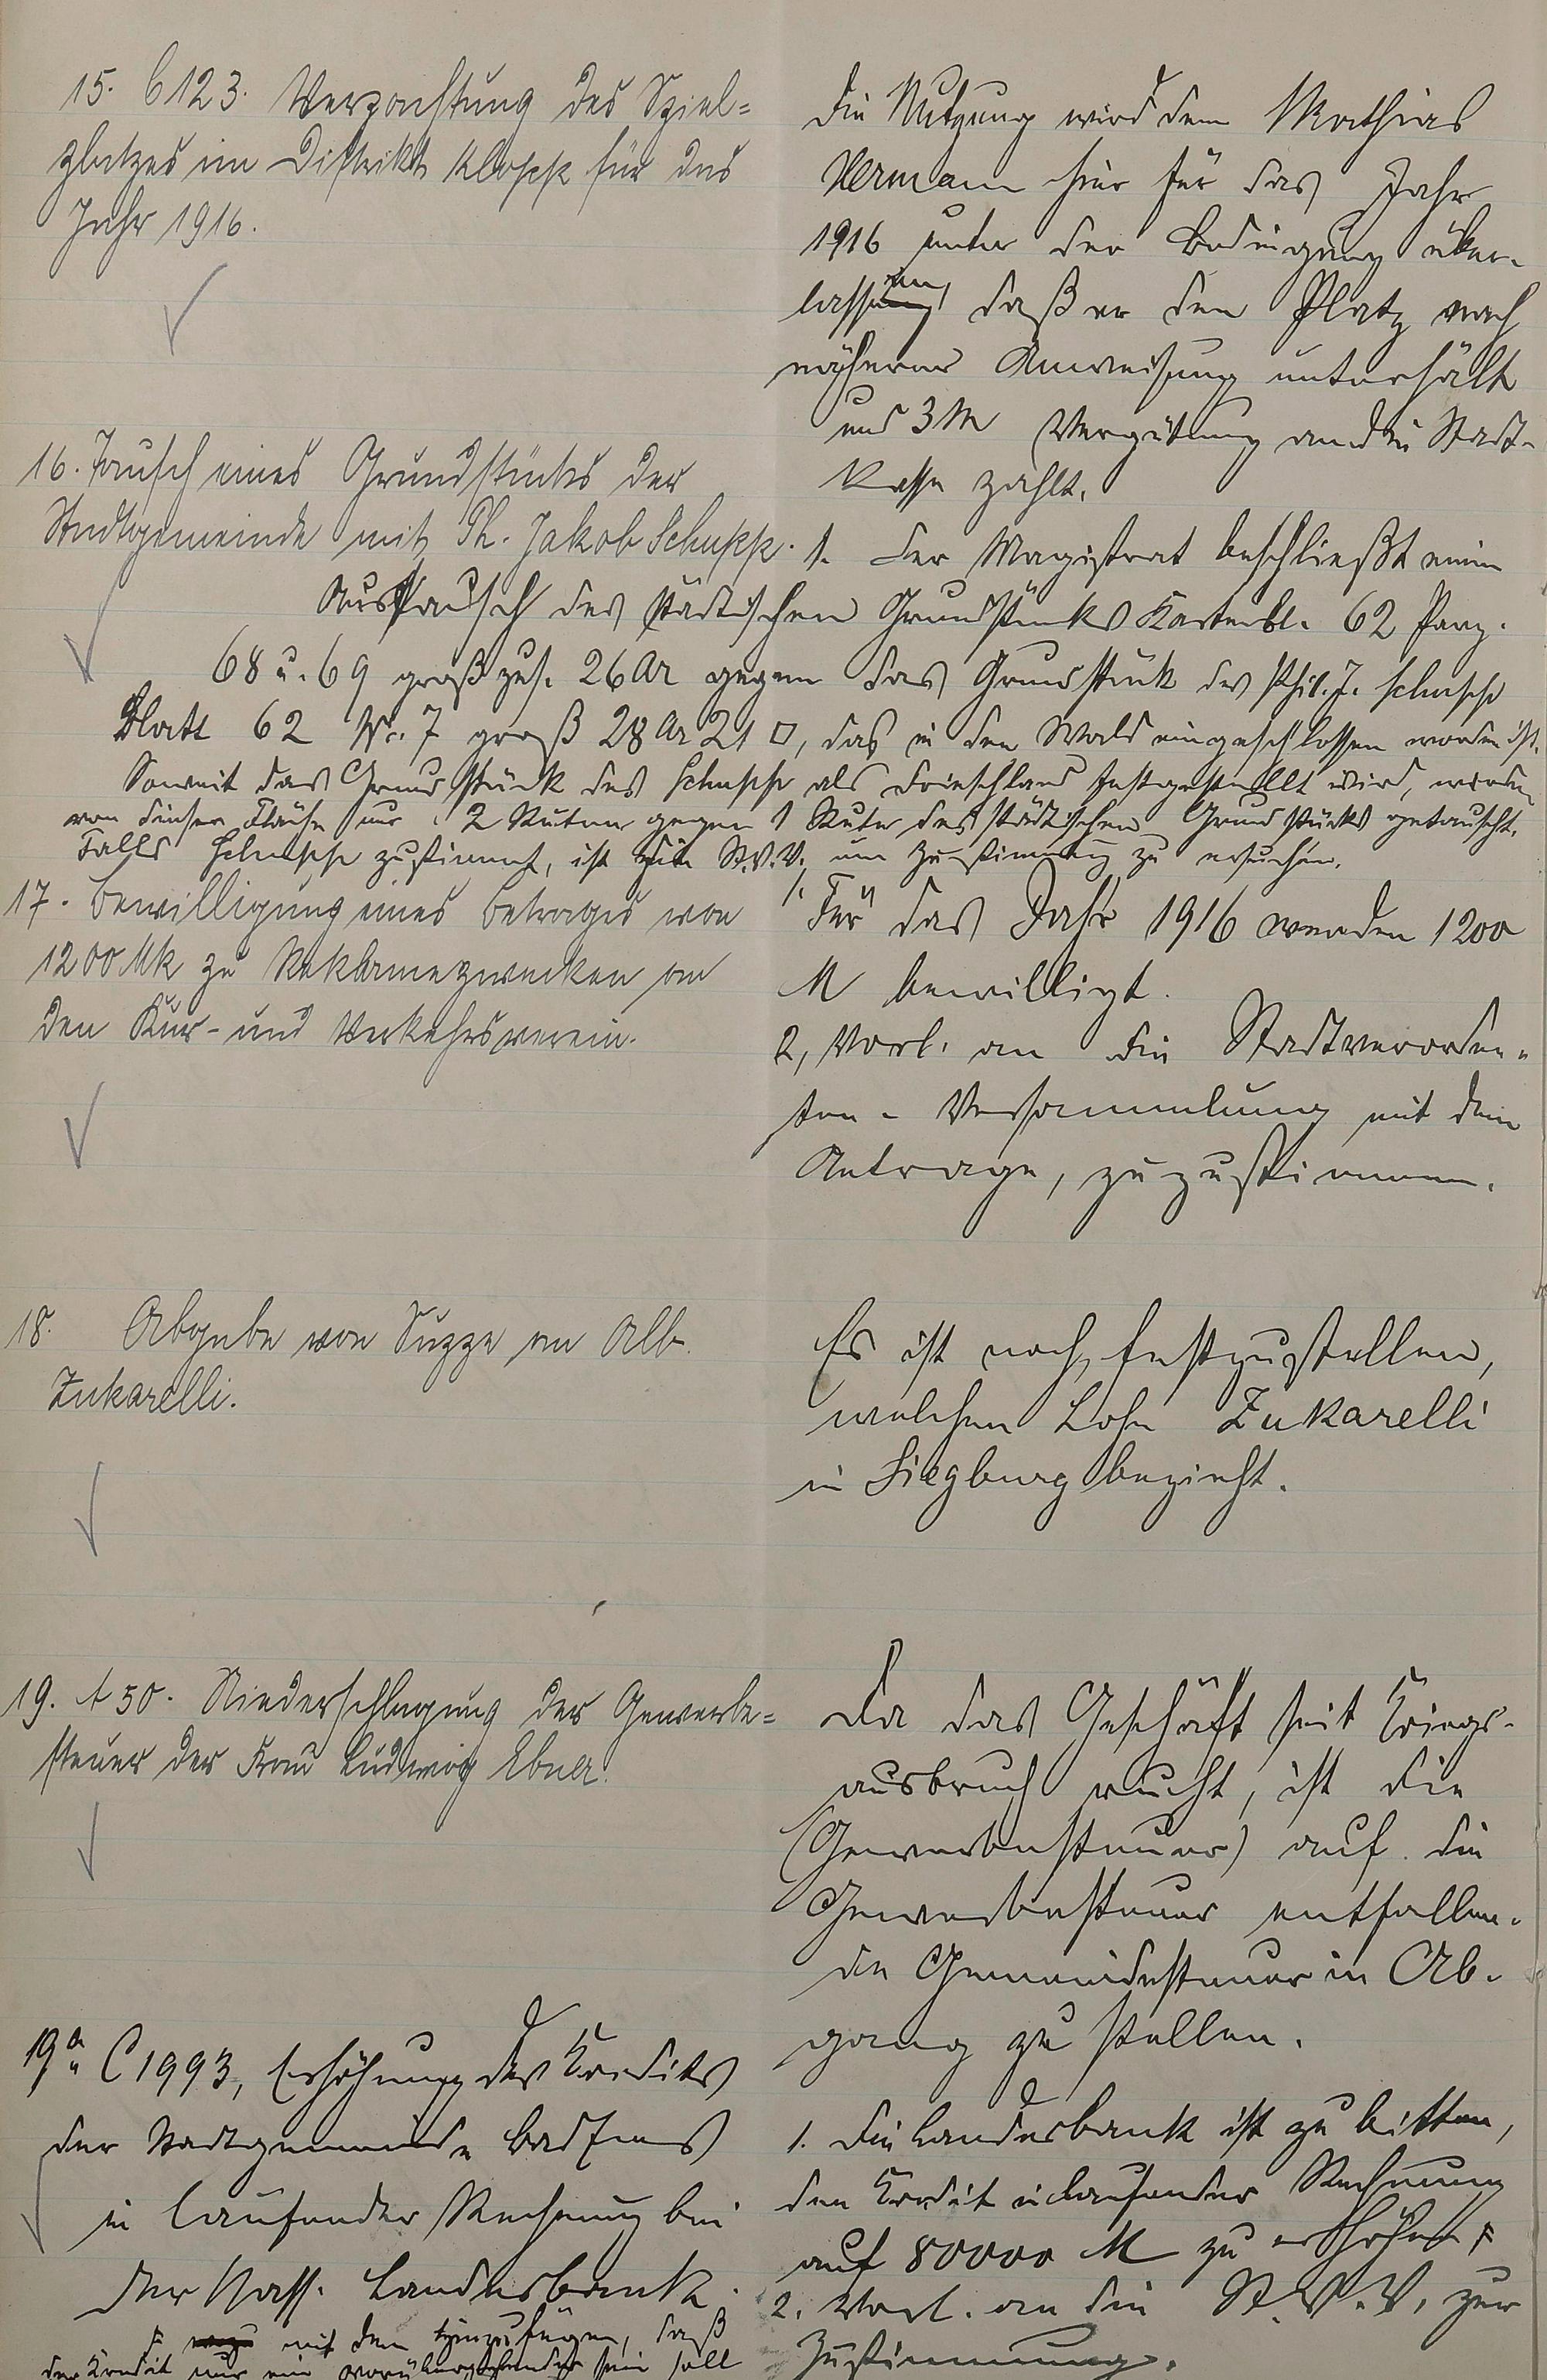 15. C 123. Verpachtung des Spiel=
platzes im Distrikt Klopp für das
Jahr 1916.
Die Nutzung wird dem Mathias
Hermann hier für das Jahr
1916 unter der Bedingung über-
lassen, daß er den Platz nach
näherer Anweisung unterhält
und 3 M Vergütung an die Stadt-
kasse zahlt.
16. Tausch eines Grundstücks der
Stadtgemeinde mit Ph. Jakob Schupp.
1. Der Magistrat beschließt einen
Austausch des städtischen Grundstücks Kartenbl. 62 Parz.
68 u. 69 groß zus. 26 Ar gegen das Grundstück des Phil. J. Schupp
Blatt 62 Nr. 7 groß 28 Ar 21 □, das in den Wald eingeschlossen worden ist.
Soweit das Grundstück des Schupp als Drieschland festgestellt wird, werden
von dieser Fläche nur 2 Ruten gegen 1 Rute des städtischen Grundstücks getauscht.
Falls Schupp zustimmt, ist die St.V.V. um Zustimmung zu ersuchen.
17. Bewilligung eines Betrages von
1200 Mk zu Reklamezwecken an
den Kur- und Verkehrsverein.
1. Für das Jahr 1916 werden 1200
M bewilligt.
2, Vorl. an die Stadtverordne-
ten-Versammlung mit dem
Antrage, zuzustimmen.
18. Abgabe von Suppe an Alb.
Zukarelli.
Es ist noch festzustellen,
welchen Lohn Zukarelli
in Siegburg bezieht.
19. A 50. Niederschlagung der Gewerbe=
steuer der Frau Ludwig Ebner.
Da das Geschäft seit Kriegs-
ausbruch ruht, ist die
(Gewerbesteuer) auf die
Gewerbesteuer entfallen-
de Gemeindesteuer in Ab-
gang zu stellen.
19a. C 1993, Erhöhung des Kredits
der Stadtgemeinde Bad Ems
in laufender Rechnung bei
der Nass. Landesbank.
1. Die Landesbank ist zu bitten,
den Kredit in laufender Rechnung
auf 80000 M zu erhöhen F
2. Vorl. an die St.V.V. zur
Zustimmung.
F mit dem Hinzufügen, daß
der Kredit nur ein vorübergehender sein soll